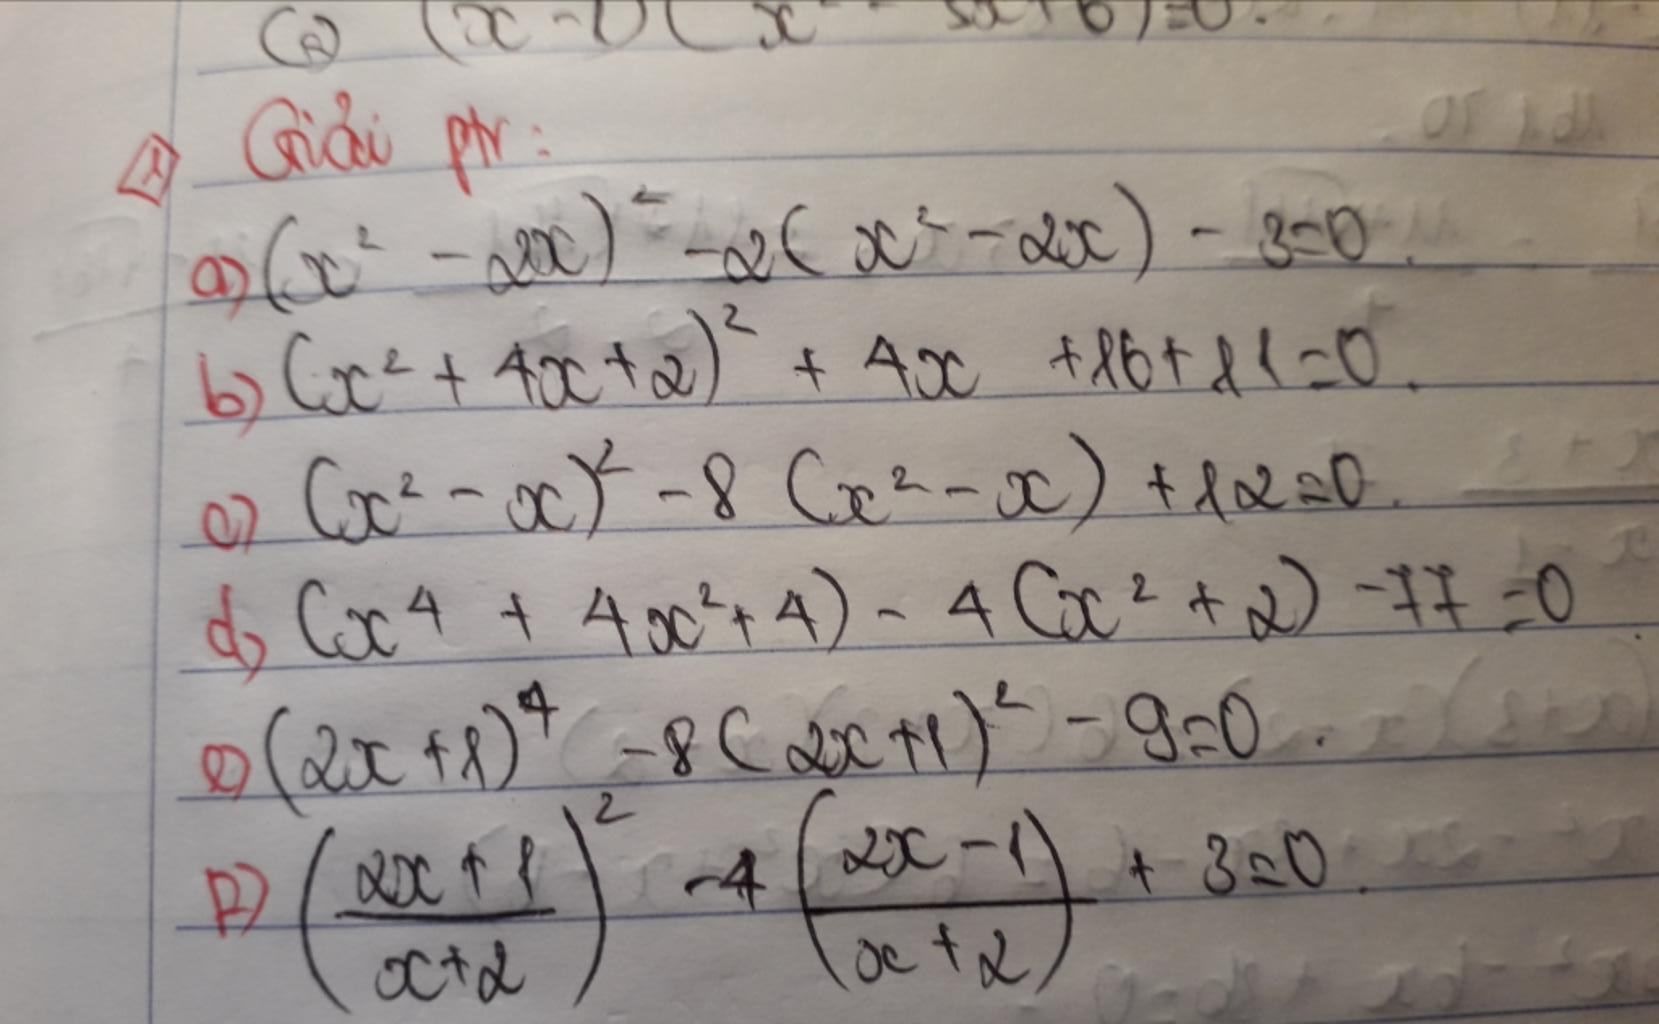 (x - 1)(x² - 5x + 6) = 0.
Giải ptr:
a) (x² - 2x)² - 2(x² - 2x) - 3 = 0.
b) (x² + 4x + 2)² + 4x + 16 + 11 = 0.
c) (x² - x)² - 8(x² - x) + 12 = 0.
d) (x⁴ + 4x² + 4) - 4(x² + 2) - 77 = 0
e) (2x + 1)⁴ - 8(2x + 1)² - 9 = 0.
f) ((2x + 1)/(x + 2))² - 4((2x - 1)/(x + 2)) + 3 = 0.